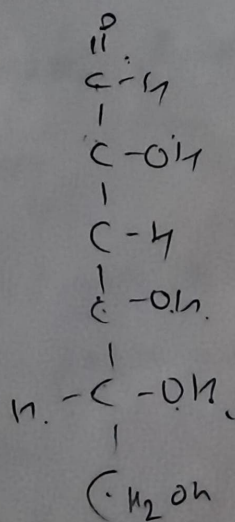 O
||
C-H
|
C-OH
|
C-H
|
C-OH
|
H-C-OH
|
CH2OH